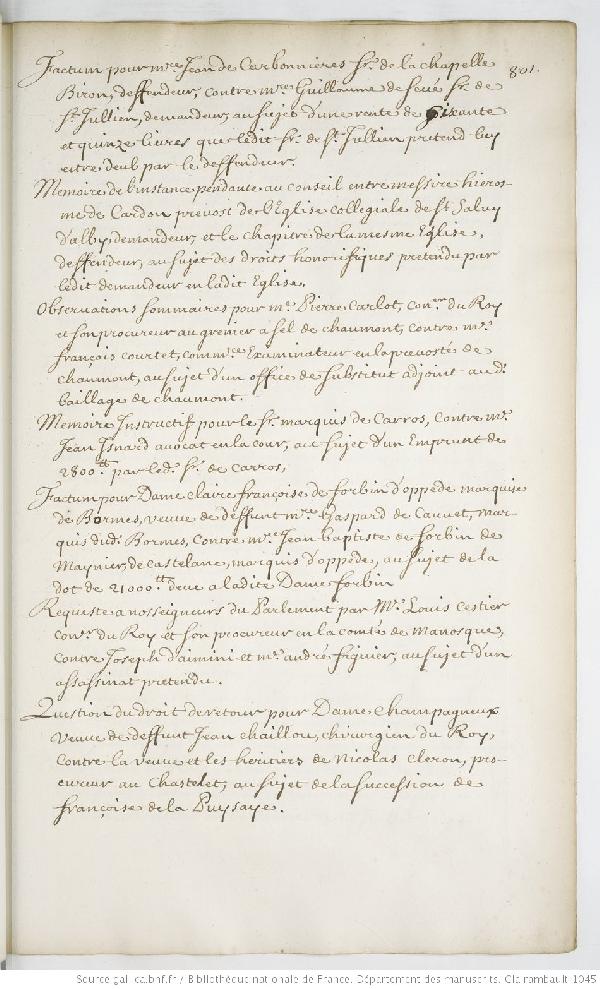 801.
Factum pour mre Jean de Carbonnieres sr. de la chapelle
Biron, deffendeur, contre mre Guillaume de Seué sr. de
St. Jullien, demandeur, au sujet d'une rente de Soixante
et quinze livres que ledit sr. de St. Jullien pretend luy
estre deub par le deffendeur.
Memoire de l'instance pendante au conseil entre messire hieros-
me de Cardon prevost de l'Eglise collegiale de St. Saluy
d'alby, demandeur, et le chapitre de la mesme Eglise,
deffendeur, au sujet des droits honorifiques pretendu par
ledit demandeur en ladit Eglise.
Observations sommaires pour me. Pierre Carlot, coner du Roy
et son procureur au grenier a sel de chaumont, contre me.
françois courtet, commre Examinateur en la prevosté de
chaumont, au sujet d'un office de substitut adjoint aud.
bailliage de chaumont.
Memoire Instructif pour le sr. marquis de Carros, contre me.
Jean Isnard avocat en la cour, au sujet d'un Emprunt de
2800tt. par led. sr. de Carros,
Factum pour Dame claire françoise de forbin d'oppede marquise
de Bormes, veuve de deffunt mre Gaspard de Cauuet, mar-
quis dud. Bormes, contre mre Jean baptiste de forbin de
Maynier, de castelane, marquis d'oppede, au sujet de la
dot de 21000tt deue a ladite Dame forbin
Requeste a nosseigneurs du Parlement par Me. Louis Cestier
coner. du Roy et son procureur en la comté de Manosque,
contre Joseph d'aimini et me. andré figuier, au sujet d'un
assassinat pretendu.
Question du droit de retour pour Dame Champagneux
veuve de deffunt Jean chaillou, chirurgien du Roy,
contre la veuve et les heritiers de Nicolas cleron, pro-
cureur au Chastelet, au sujet de la succession de
françoise de la Puysaye.
Source gallica.bnf.fr / Bibliothèque nationale de France. Département des manuscrits. Clairambault 1045